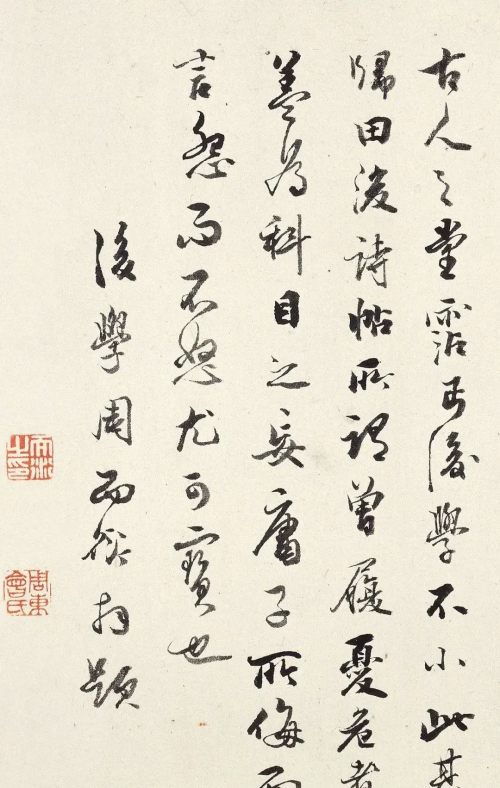 古人之堂霑丐後學不小此其
歸田後詩帖所謂曾履憂危者
蓋為科目之妄庸子所侮而
言怨而不怒尤可寶也
後學周兩拜題
周東會氏